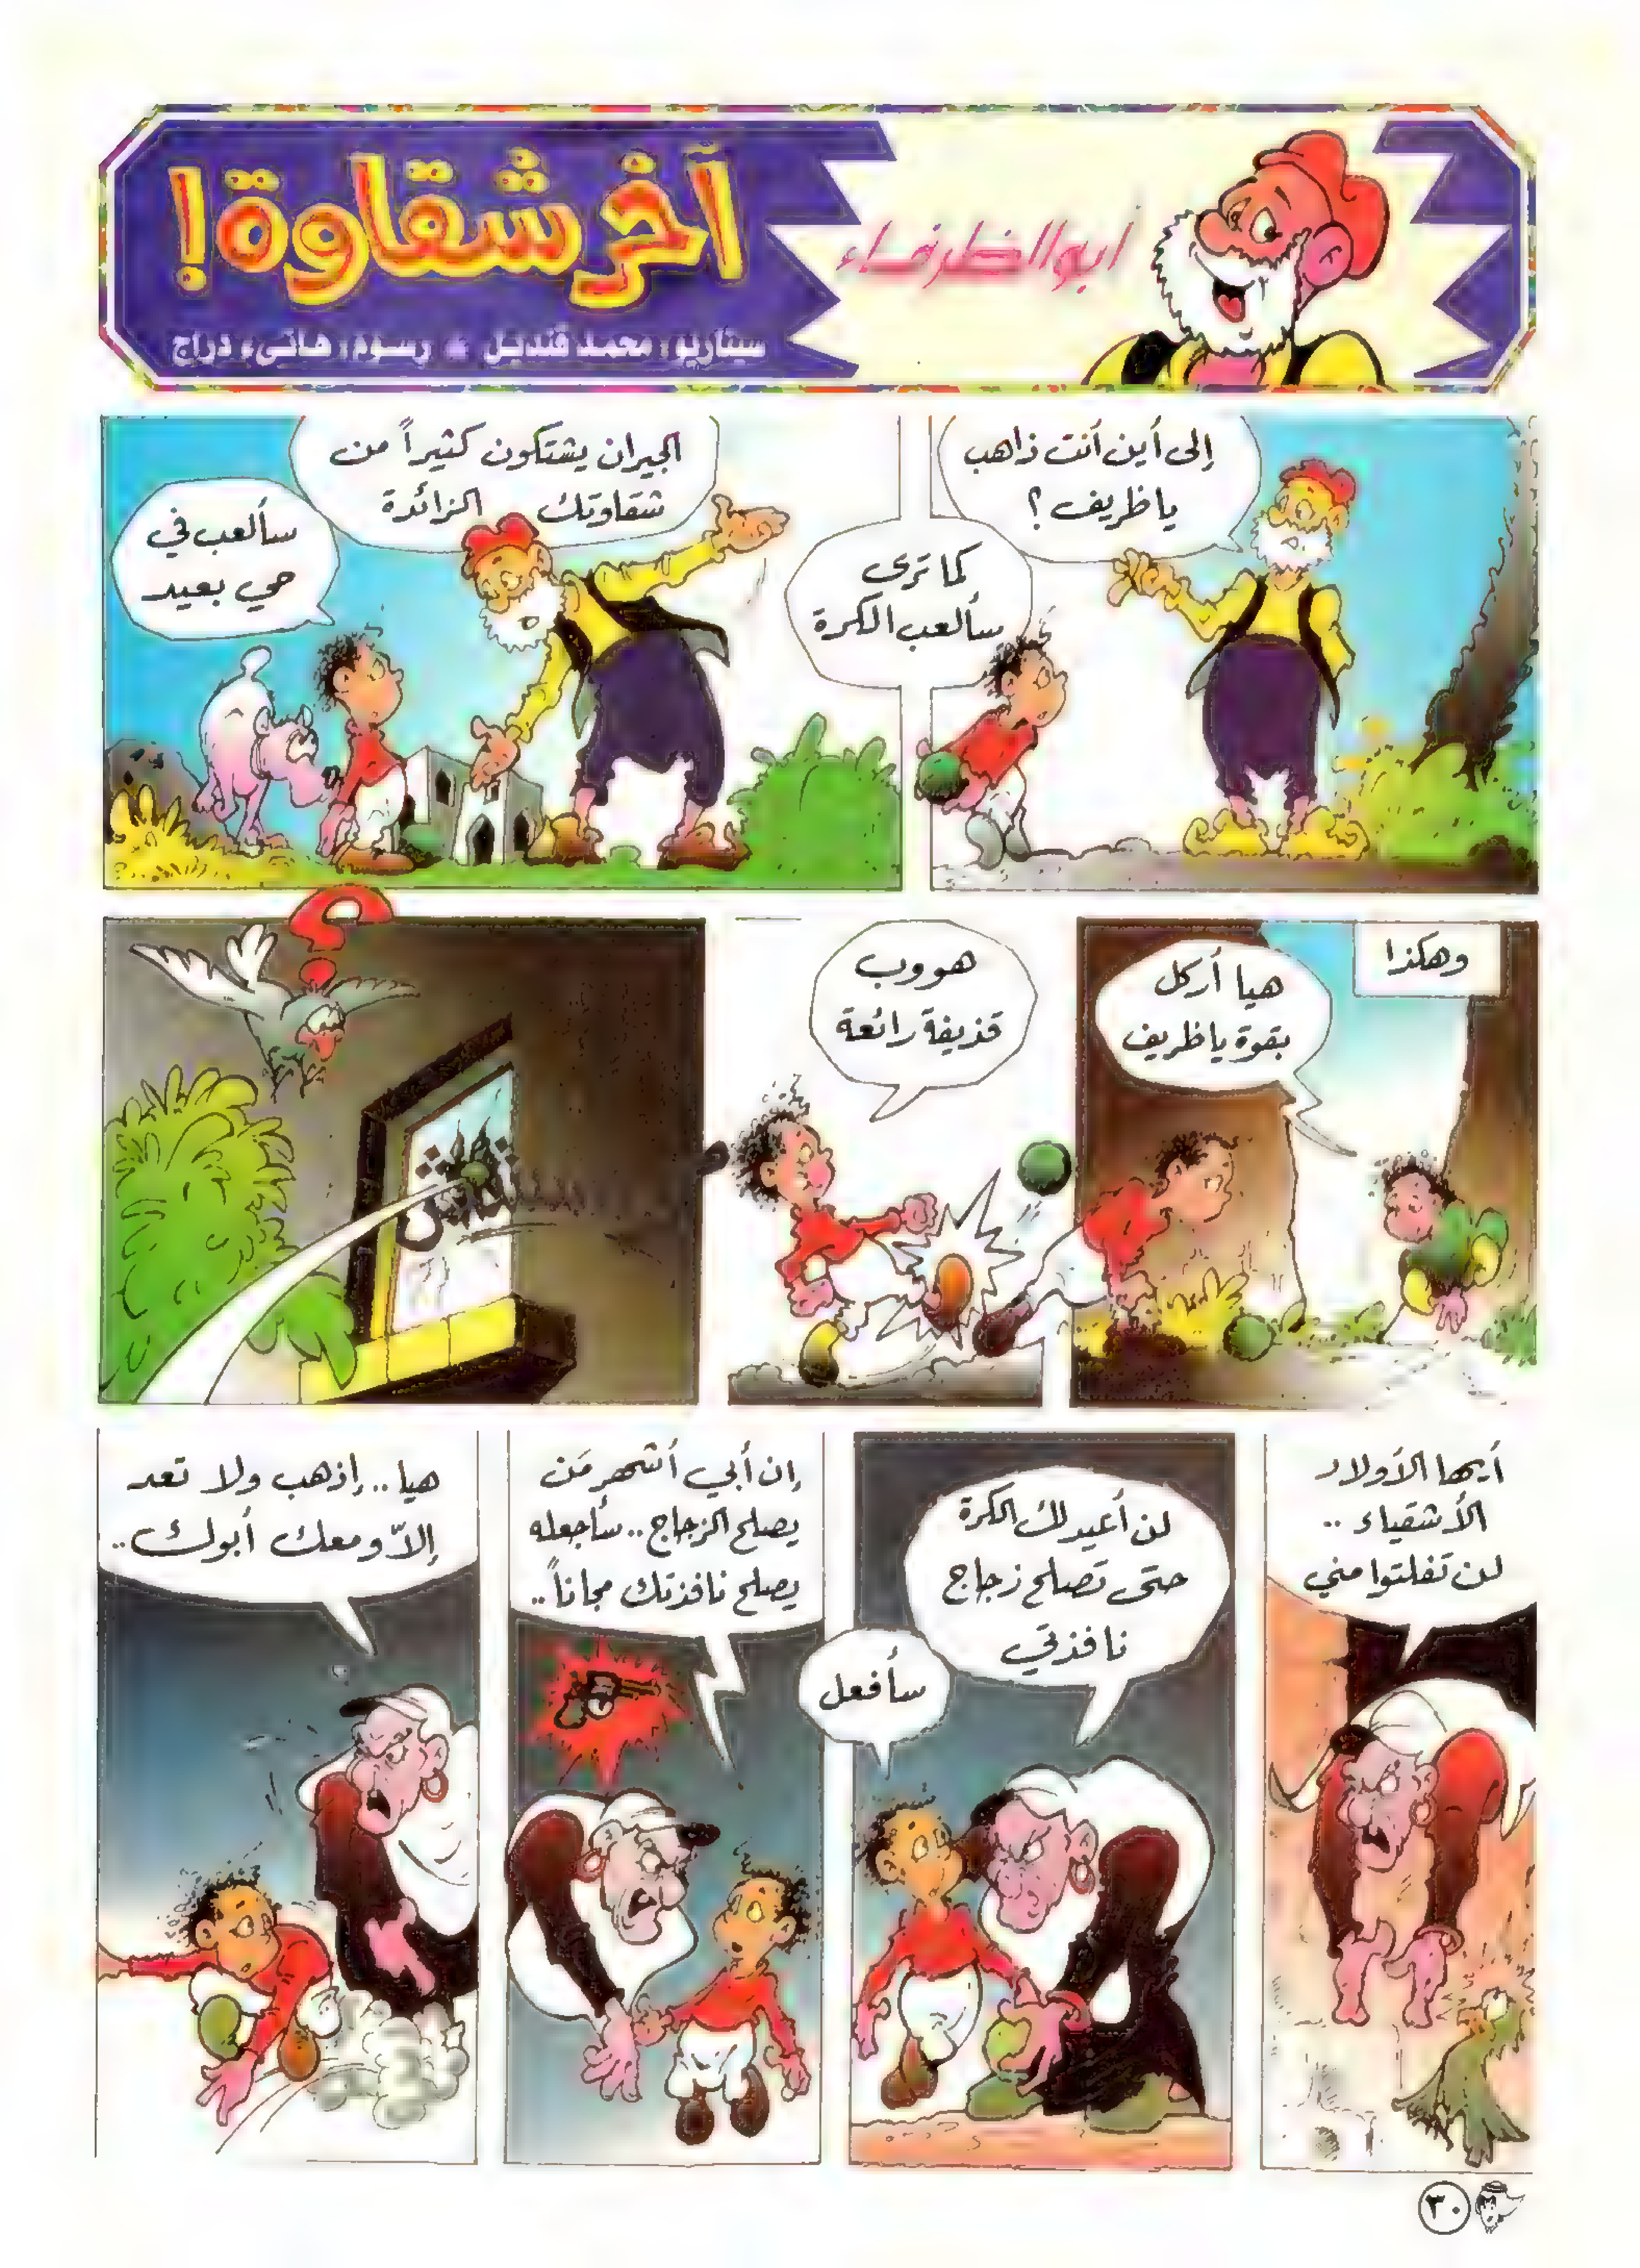 أبو الظرفاء
آخر شقاوة!
سيناريو: محمد قنديل * رسوم: هاني دراج
إلى أين أنت ذاهب
يا ظريف؟
كما ترى
سألعب الكرة
الجيران يشتكون كثيراً من
شقاوتك الزائدة
سألعب في
حي بعيد
وهكذا
هيا أركل
بقوة يا ظريف
هووب
قذيفة رائعة
؟
أيها الأولاد
الأشقياء ..
لن تفلتوا مني
لن أعيد لك الكرة
حتى تصلح زجاج
نافذتي
سأفعل
إن أبي أشهر مَن
يصلح الزجاج .. سأجعله
يصلح نافذتك مجاناً ..
هيا .. إذهب ولا تعد
إلاّ ومعك أبوك ..
٣٠